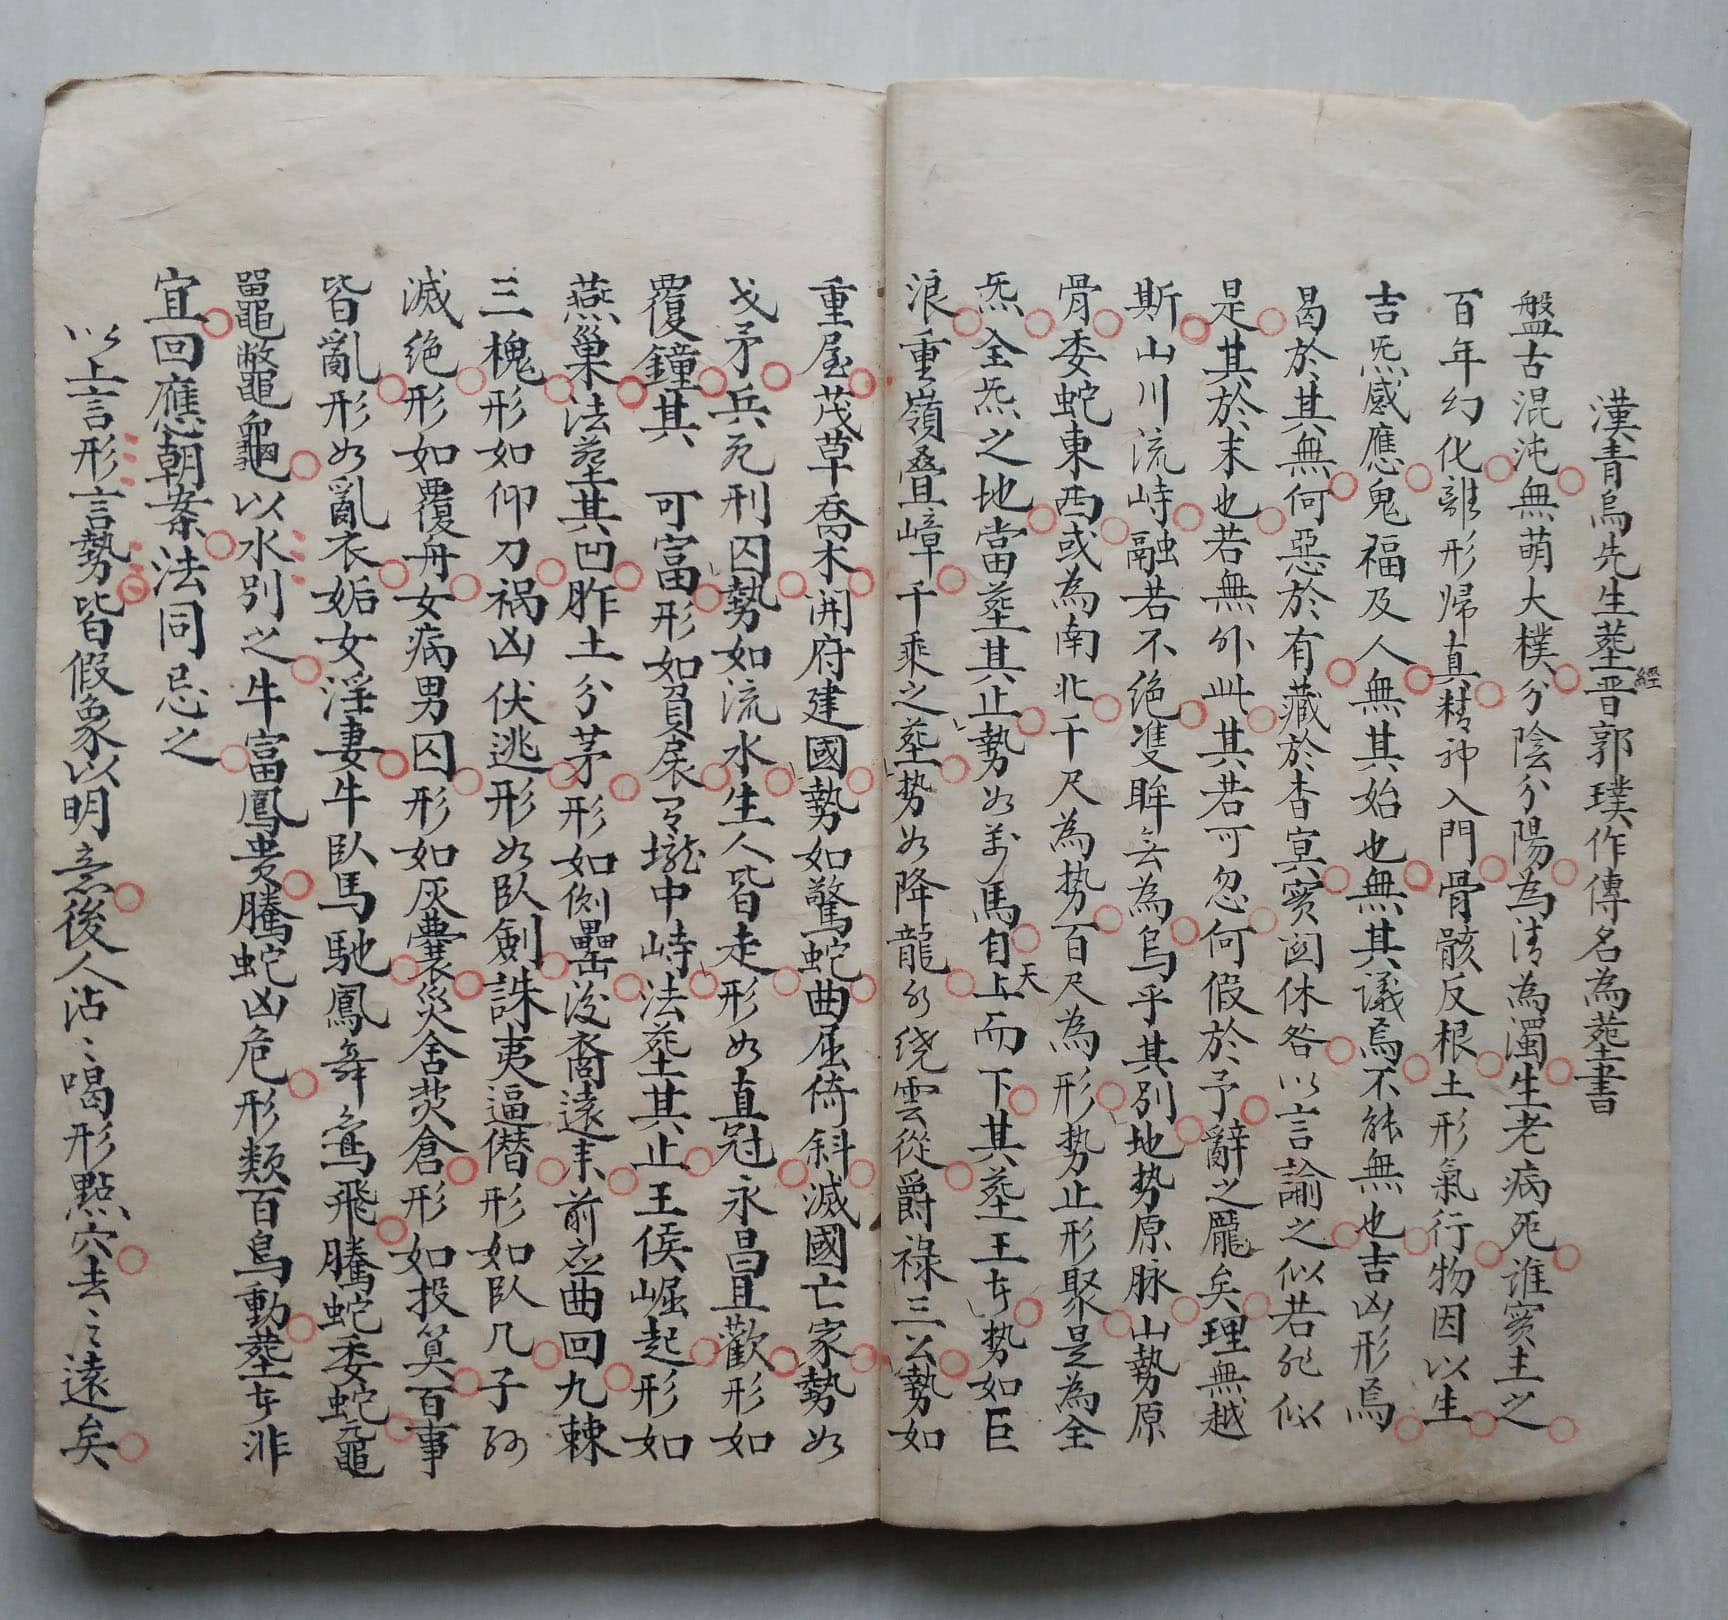 漢青烏先生葬經晋郭璞作傳名為葬書
盤古混沌無萌大樸分陰分陽為清為濁生老病死谁實主之
百年幻化離形歸真精神入門骨骸反根土形氣行物因以生
吉炁感應鬼福及人無其始也無其議焉不能無也吉凶形焉
曷於其無何惡於有藏於杳冥實図休咎以言諭之似若非似
是其於末也若無外此其若可忽何假於予辭之厖矣理無越
斯山川流峙融若不絶雙眸云為烏乎其別地势原脉山勢原
骨委蛇東西或為南北千尺為势百尺為形势止形聚是為全
炁全炁之地當葬其止勢如万馬自天上而下其葬王者势如巨
浪重嶺叠嶂千乘之葬势如降龍水绕雲從爵禄三公勢如
重屋茂草喬木開府建國勢如驚蛇曲屈倚斜滅國亡家勢如
戈矛兵死刑囚勢如流水生人皆走形如直冠永昌且歡形如
覆鐘其 可富形如負扆有壠中峙法葬其止王侯崛起形如
燕巢法葬其凹胙土分茅形如側罍後裔遠来前应曲回九棘
三槐形如仰刀祸凶伏逃形如臥劍誅夷逼僭形如臥几子孙
滅绝形如覆舟女病男囚形如灰囊災舍焚倉形如投筭百事
皆亂形如亂衣姤女淫妻牛臥馬馳鳳舞鸾飛騰蛇委蛇黿
鼉鼈龜以水别之牛富鳳贵騰蛇凶危形類百鳥動葬者非
宜回應朝案法同忌之
以上言形言勢皆假象以明意後人沾〻喝形點穴去〻遠矣